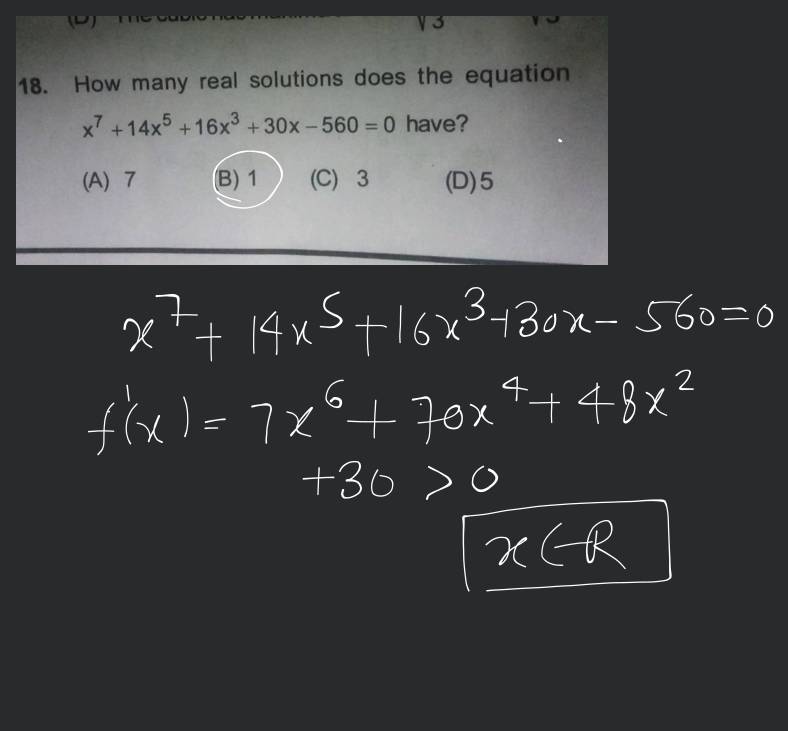 18. How many real solutions does the equation
x⁷ + 14x⁵ + 16x³ + 30x – 560 = 0 have?
(A) 7 (B) 1 (C) 3 (D) 5
x⁷ + 14x⁵ + 16x³ + 30x – 560 = 0
f'(x) = 7x⁶ + 70x⁴ + 48x²
+30 > 0
x ∈ R